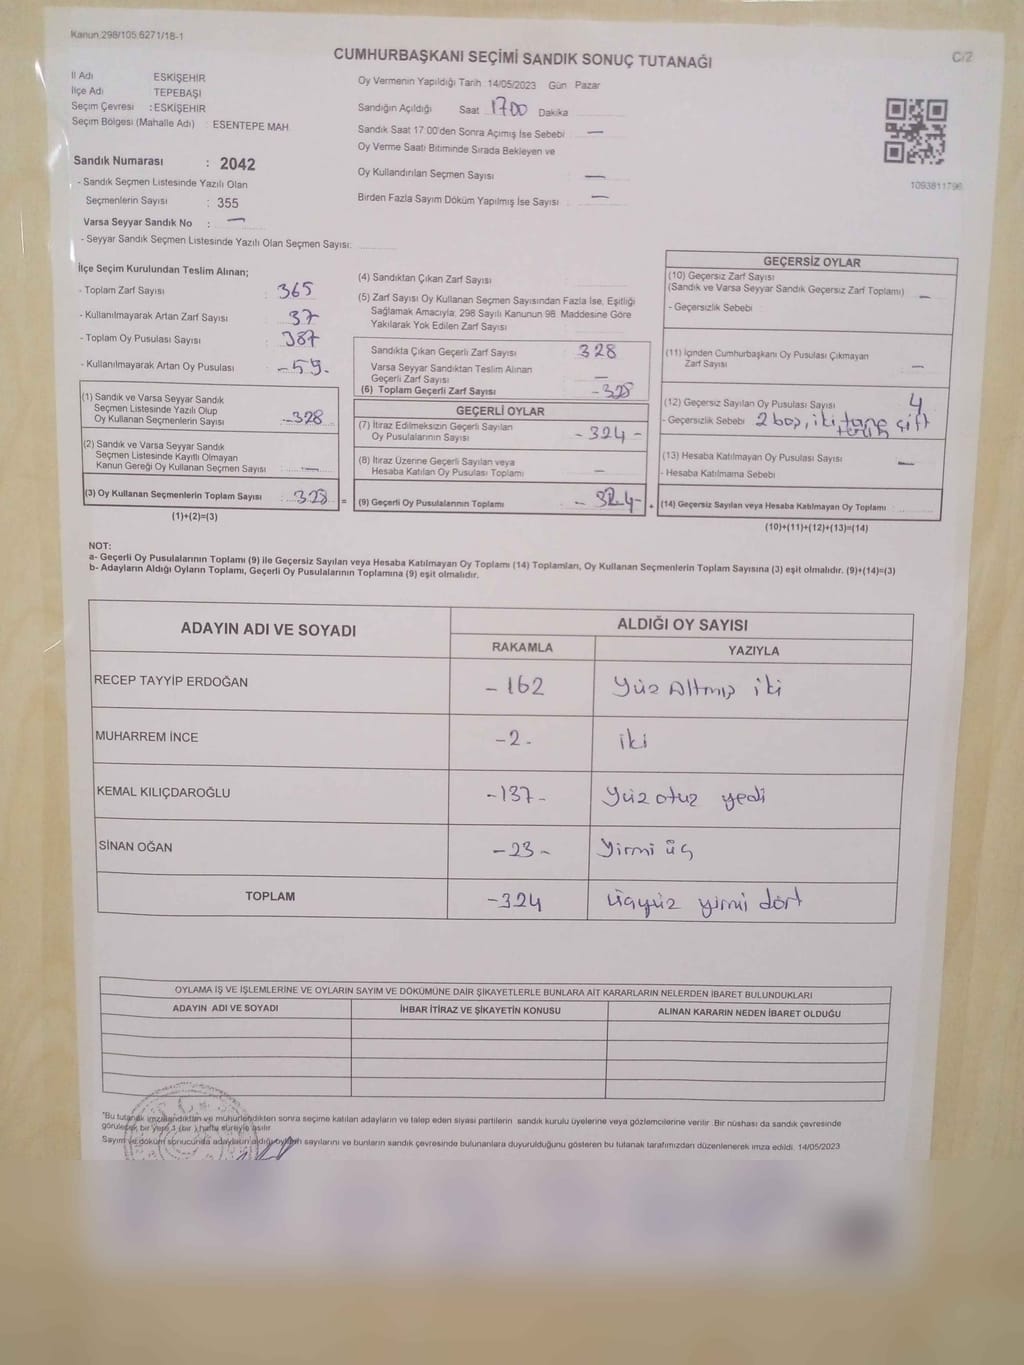 Kanun 298/105.6271/18-1
C/2
CUMHURBAŞKANI SEÇİMİ SANDIK SONUÇ TUTANAĞI
İl Adı ESKİŞEHİR
İlçe Adı TEPEBAŞI
Seçim Çevresi : ESKİŞEHİR
Seçim Bölgesi (Mahalle Adı) ESENTEPE MAH.
Sandık Numarası : 2042
- Sandık Seçmen Listesinde Yazılı Olan
Seçmenlerin Sayısı : 355
Varsa Seyyar Sandık No : —
- Seyyar Sandık Seçmen Listesinde Yazılı Olan Seçmen Sayısı:
Oy Vermenin Yapıldığı Tarih 14/05/2023 Gün Pazar
Sandığın Açıldığı Saat 1700 Dakika
Sandık Saat 17 00'den Sonra Açımış İse Sebebi : —
Oy Verme Saati Bitiminde Sırada Bekleyen ve
Oy Kullandırılan Seçmen Sayısı —
Birden Fazla Sayım Döküm Yapılmış İse Sayısı : —
1093811796
İlçe Seçim Kurulundan Teslim Alınan;
- Toplam Zarf Sayısı : 365
- Kullanılmayarak Artan Zarf Sayısı : 37
- Toplam Oy Pusulası Sayısı : 387
- Kullanılmayarak Artan Oy Pusulası - 59 -
(1) Sandık ve Varsa Seyyar Sandık
Seçmen Listesinde Yazılı Olup
Oy Kullanan Seçmenlerin Sayısı - 328
(2) Sandık ve Varsa Seyyar Sandık
Seçmen Listesinde Kayıtlı Olmayan
Kanun Gereği Oy Kullanan Seçmen Sayısı : —
(3) Oy Kullanan Seçmenlerin Toplam Sayısı : 328 =
(1)+(2)=(3)
(4) Sandıktan Çıkan Zarf Sayısı
(5) Zarf Sayısı Oy Kullanan Seçmen Sayısından Fazla İse, Eşitliği
Sağlamak Amacıyla, 298 Sayılı Kanunun 98. Maddesine Göre
Yakılarak Yok Edilen Zarf Sayısı
Sandıkta Çıkan Geçerli Zarf Sayısı 328
Varsa Seyyar Sandıktan Teslim Alınan
Geçerli Zarf Sayısı —
(6) Toplam Geçerli Zarf Sayısı - 328
GEÇERLİ OYLAR
(7) İtiraz Edilmeksizin Geçerli Sayılan
Oy Pusulalarının Sayısı - 324 -
(8) İtiraz Üzerine Geçerli Sayılan veya
Hesaba Katılan Oy Pusulası Toplamı —
(9) Geçerli Oy Pusulalarının Toplamı - 324 - +
GEÇERSİZ OYLAR
(10) Geçersiz Zarf Sayısı
(Sandık ve Varsa Seyyar Sandık Geçersiz Zarf Toplamı) —
- Geçersizlik Sebebi
(11) İçinden Cumhurbaşkanı Oy Pusulası Çıkmayan
Zarf Sayısı —
(12) Geçersiz Sayılan Oy Pusulası Sayısı 4
- Geçersizlik Sebebi 2 boş, iki tane çift
(13) Hesaba Katılmayan Oy Pusulası Sayısı —
- Hesaba Katılmama Sebebi
(14) Geçersiz Sayılan veya Hesaba Katılmayan Oy Toplamı :
(10)+(11)+(12)+(13)=(14)
NOT:
a- Geçerli Oy Pusulalarının Toplamı (9) ile Geçersiz Sayılan veya Hesaba Katılmayan Oy Toplamı (14) Toplamları, Oy Kullanan Seçmenlerin Toplam Sayısına (3) eşit olmalıdır. (9)+(14)=(3)
b- Adayların Aldığı Oyların Toplamı, Geçerli Oy Pusulalarının Toplamına (9) eşit olmalıdır.
ADAYIN ADI VE SOYADI ALDIĞI OY SAYISI
RAKAMLA YAZIYLA
RECEP TAYYİP ERDOĞAN - 162 Yüz Altmış iki
MUHARREM İNCE - 2 - iki
KEMAL KILIÇDAROĞLU - 137 - Yüz otuz yedi
SİNAN OĞAN - 23 - Yirmi üç
TOPLAM - 324 üçyüz yirmi dört
OYLAMA İŞ VE İŞLEMLERİNE VE OYLARIN SAYIM VE DÖKÜMÜNE DAİR ŞİKAYETLERLE BUNLARA AİT KARARLARIN NELERDEN İBARET BULUNDUKLARI
ADAYIN ADI VE SOYADI İHBAR İTİRAZ VE ŞİKAYETİN KONUSU ALINAN KARARIN NEDEN İBARET OLDUĞU
"Bu tutanak imzalandıktan ve mühürlendikten sonra seçime katılan adayların ve talep eden siyasi partilerin sandık kurulu üyelerine veya gözlemcilerine verilir. Bir nüshası da sandık çevresinde
görülecek bir yere 1 (bir) hafta süreyle asılır
Sayım ve döküm sonucunda adayların aldığı oyların sayılarını ve bunların sandık çevresinde bulunanlara duyurulduğunu gösteren bu tutanak tarafımızdan düzenlenerek imza edildi. 14/05/2023